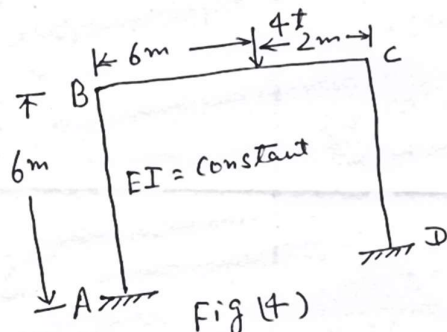 4t
6m 2m
B C
6m
EI = constant
A D
Fig (4)